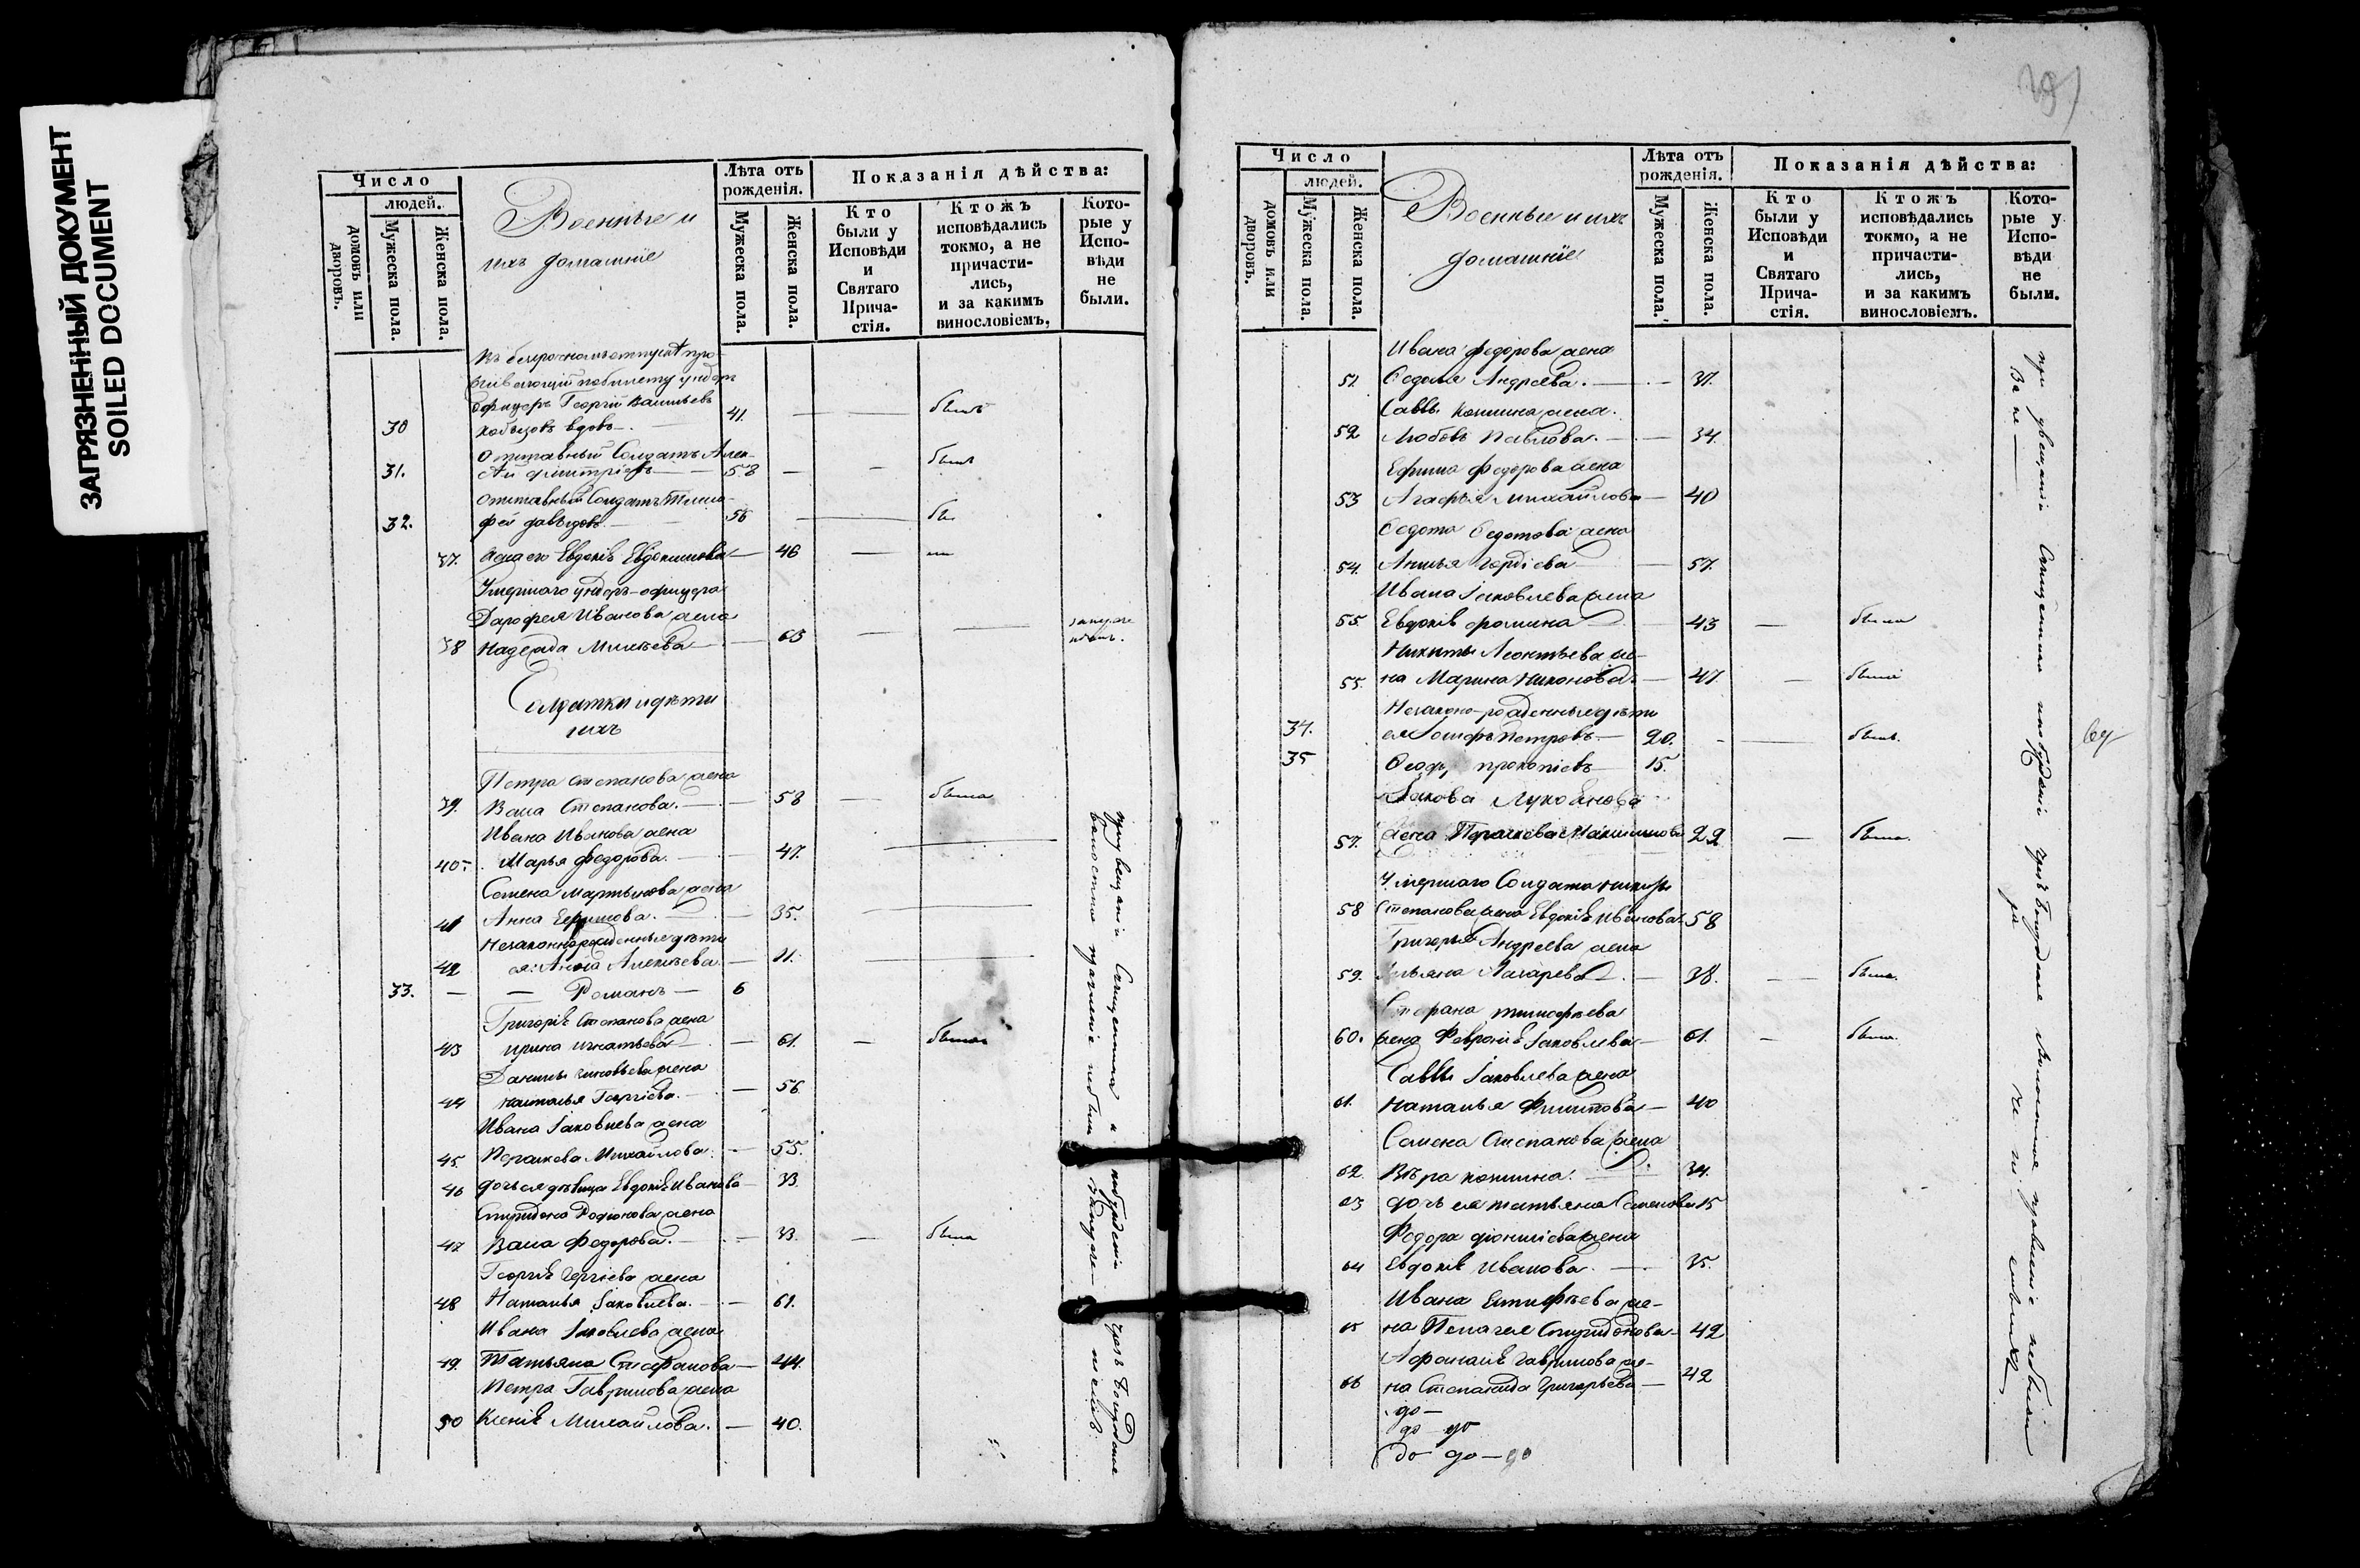 ЗАГРЯЗНЕННЫЙ ДОКУМЕНТ
SOILED DOCUMENT
Число
людей.
домовъ или дворовъ.
Мужеска пола.
Женска пола.
Военные и
ихъ домашніе
Лѣта отъ рожденія.
Мужеска пола.
Женска пола.
Показанія дѣйства:
Кто были у Исповѣди и Святаго Прича-стія.
Ктожъ исповѣдались токмо, а не причасти-лись, и за какимъ винословіемъ,
Кото-рые у Испо-вѣди не были.
офицеръ Георгій Васильевъ 41.
30 вдовъ былъ
Отставный Солдатъ Алек-
31. сѣй Димитріевъ 58 былъ
отставный Солдатъ Тимо-
32. фей Давыдовъ 56
37. жена его Евдокія Евдокимова 46
Умершаго ундеръ-офицера
Дарофея Иванова жена
38 Надежда Михѣева 63
Солдатки и дѣти
ихъ
Петра Степанова жена
39. Васса Степанова. 58 была
Ивана Иванова жена
40. Марья Федорова. 47.
Семена Мартынова жена
41 Анна Ефимова. 35.
Незаконнорожденные дѣти
42 ея: Анна Алексѣева. 11.
33. Романъ 6
Григорія Степанова жена
43 Ирина Игнатьева 61. была
Данилы Зиновьева жена
44 Наталья Георгіева. 56
Ивана Іаковлева жена
45. Параскева Михайлова. 55.
46 дочь ея дѣвица Евдокія Иванова 33.
Спиридона Родіонова жена
47 Васса Федорова. 33. была
Георгія Сергіева жена
48 Наталья Іаковлева. 61.
Ивана Іаковлева жена
49. Татьяна Стефанова 44.
Петра Гаврилова жена
50 Ксенія Михайлова. 40.
Число
людей.
домовъ или дворовъ.
Мужеска пола.
Женска пола.
Военные и ихъ
домашніе
Лѣта отъ рожденія.
Мужеска пола.
Женска пола.
Показанія дѣйства:
Кто были у Исповѣди и Святаго Прича-стія.
Ктожъ исповѣдались токмо, а не причасти-лись, и за какимъ винословіемъ.
Кото-рые у Испо-вѣди не были.
Ивана Федорова жена
51. Андреева. 37.
Саввы Козмина жена.
52 Любовь Павлова. 34.
Ефима Федорова жена
53 Агафья Михайлова 40
Ѳедота Ѳедотова жена
54. Анисья Гордіева 57.
Ивана Іаковлева жена
55. Евдокія Фомина 43 была
Никиты Леонтьева же-
55. на Марина Никонова. 47 была
Незаконо-рожденные дѣти
34. ея Іосифъ Петровъ. 20. былъ.
35 Прокопіевъ 15.
Іакова Лукоянова
57. жена Параскева Максимова 22 была.
Умершаго Солдата
58 Степанова жена Евдокія Иванова. 58
Григорья Андреева жена
59. Ульяна Лазарева 38. была.
Стефана Тимофеева
60. жена Февронія Іаковлева 61. была.
Саввы Іаковлева жена
61. Наталья Филипова 40
Семена Степанова жена
62. Вѣра Козмина. 34.
63 дочь ея Татьяна Семенова 15
Федора Діонисіева жена
64 Евдокія Иванова. 35.
Ивана же-
65 на Пелагея Спиридонова 42
Афанасія Гаврилова же-
66 на Степанида Григорьева 42
до
до до
до до до